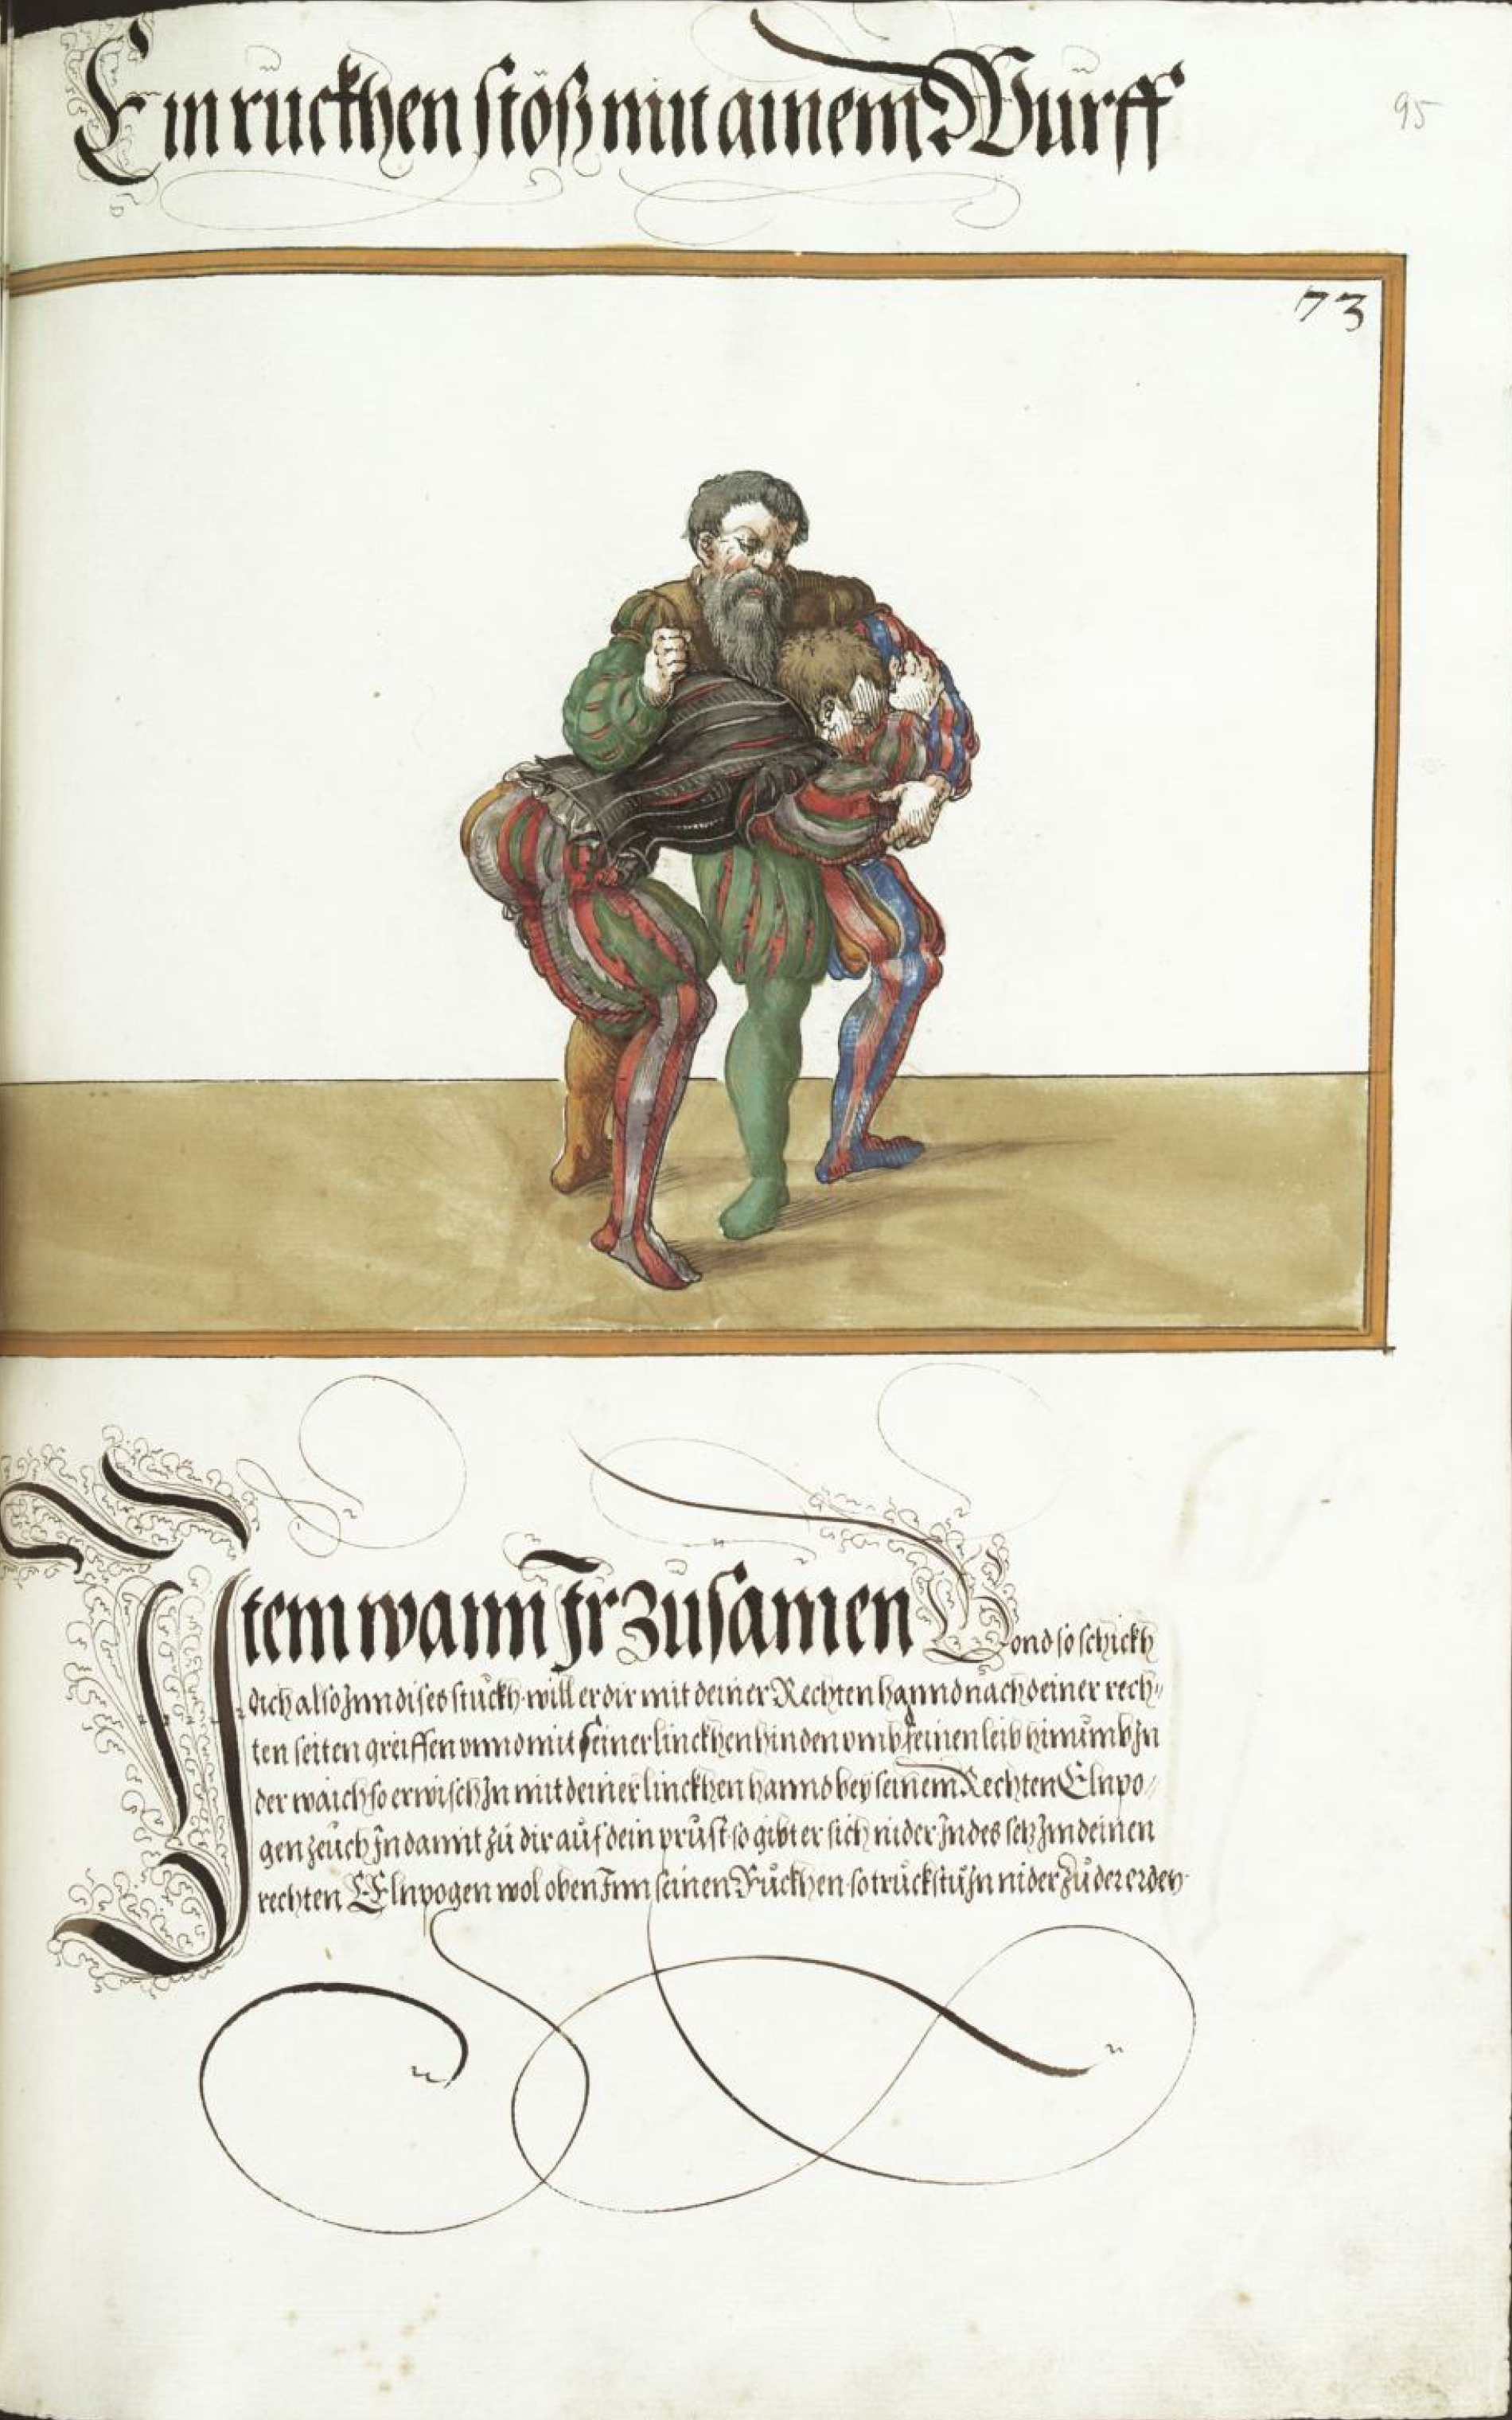 Ein rückhen stöß mit ainem Wurff
95
73
Item wann Ir zusamen Gond so schickh
dich also Inn dises stückh. will er dir mit deiner Rechten hannd nach deiner rech-
ten seiten greiffen vnnd mit seiner linckhen hinden vmb seinen leib hinumb In
der waich so erwisch In mit deiner linckhen hannd bey seinem Rechten Elnpo-
gen zeuch In damit zü dir auf dein prust so gibt er sich nider Indes setz Im deinen
rechten Elnpogen wol oben Inn seinen Rückhen so truckstu In nider zü der erden.